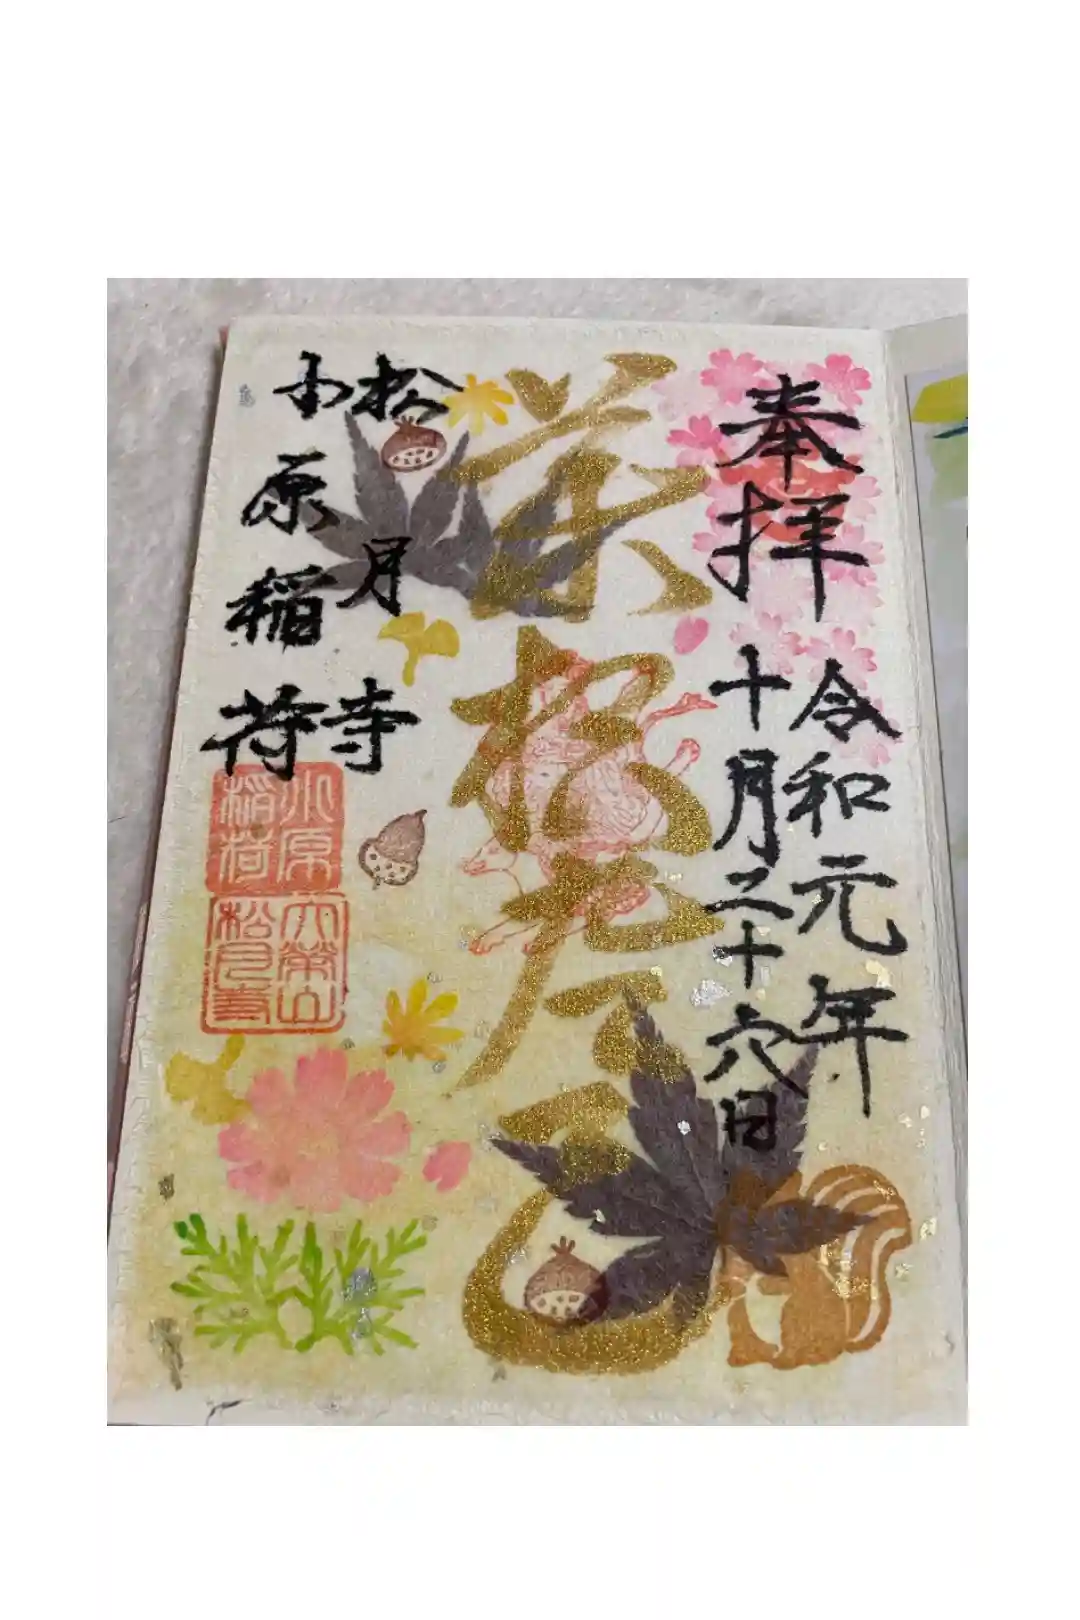 奉拝
令和元年
十月二十六日
荼枳尼天
松月寺
小原稲荷
小原
稲荷
松月寺